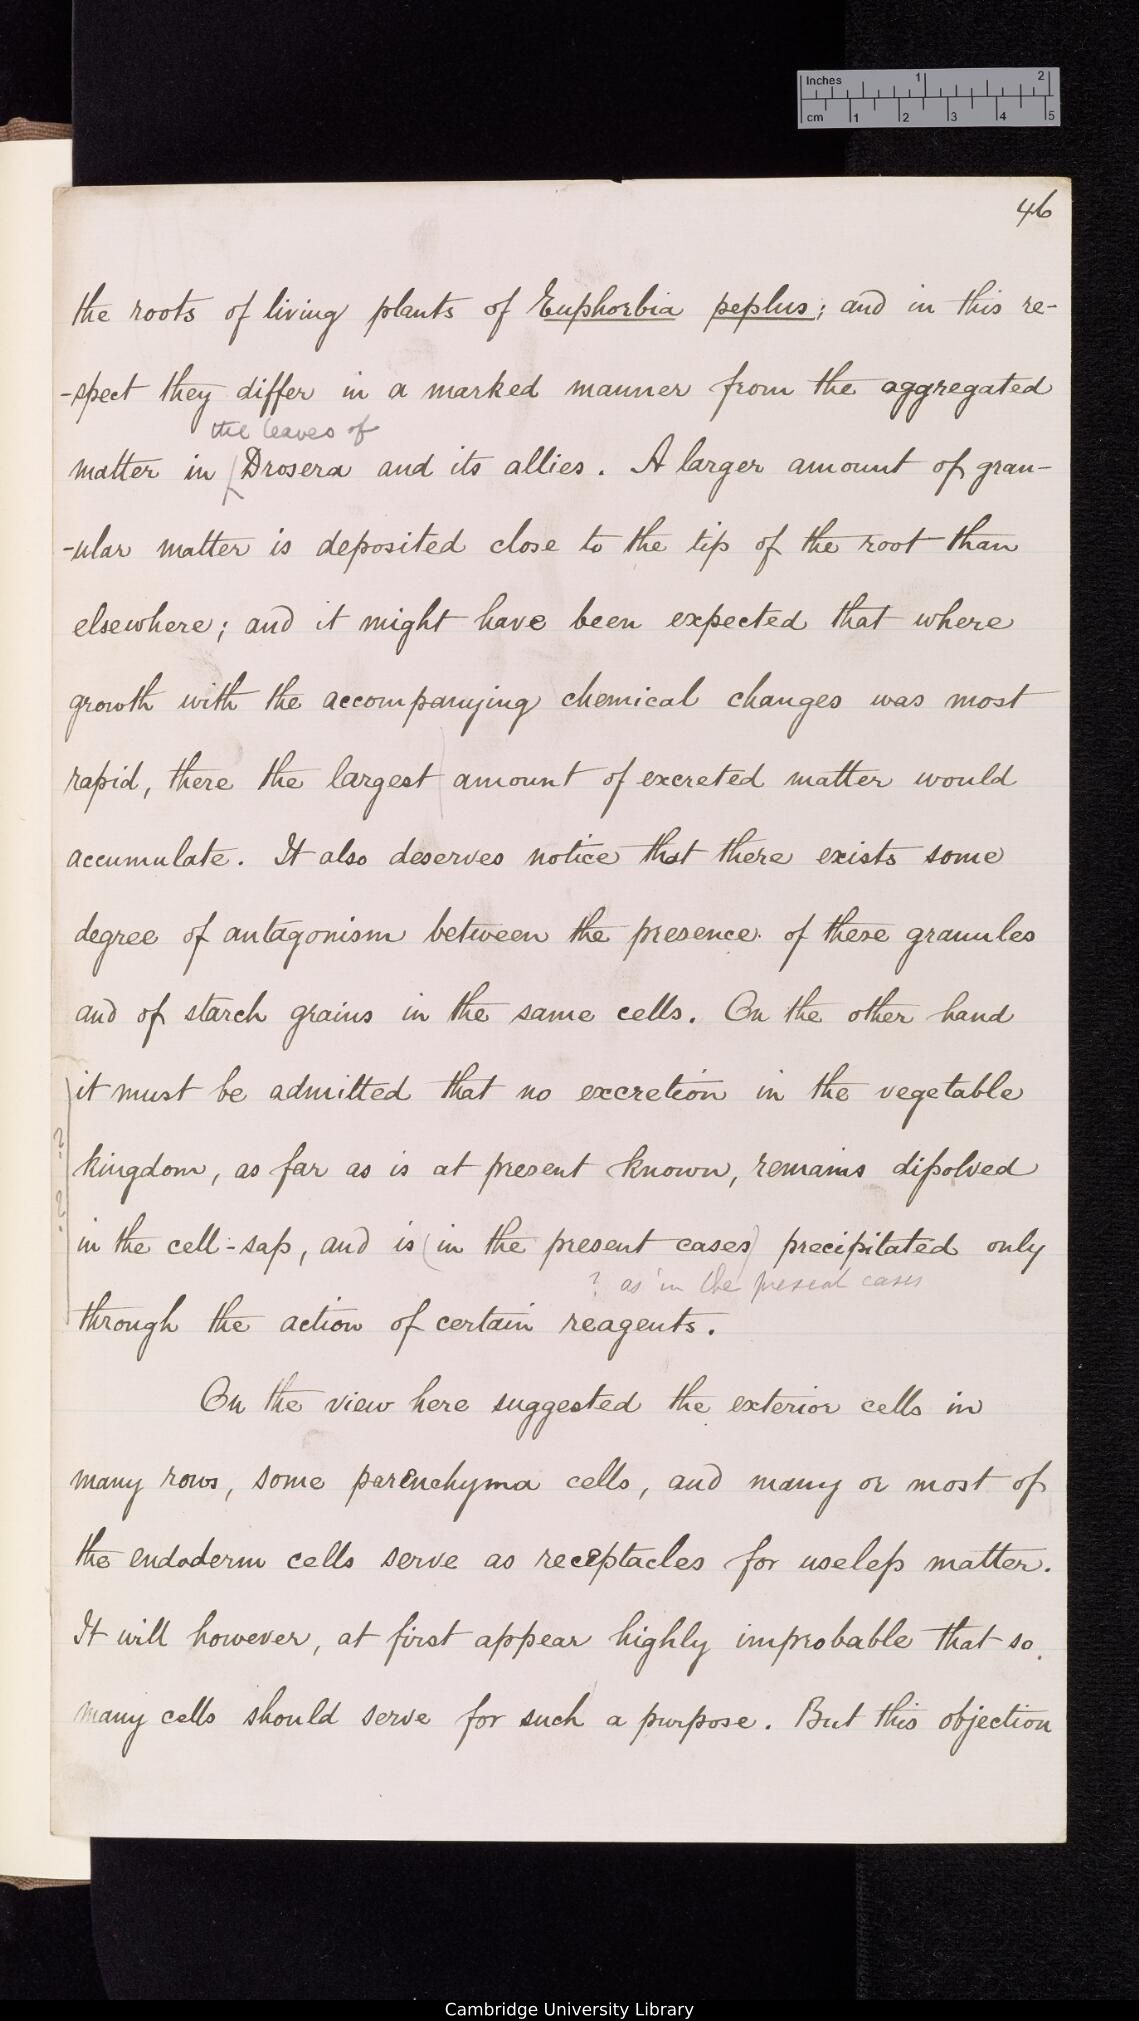 Inches 1 2
cm 1 2 3 4 5
46
the roots of living plants of Euphorbia peplus; and in this re-
-spect they differ in a marked manner from the aggregated
the leaves of
matter in Drosera and its allies. A larger amount of gran-
-ular matter is deposited close to the tip of the root than
elsewhere; and it might have been expected that where
growth with the accompanying chemical changes was most
rapid, there the largest amount of excreted matter would
accumulate. It also deserves notice that there exists some
degree of antagonism between the presence of these granules
and of starch grains in the same cells. On the other hand
it must be admitted that no excretion in the vegetable
kingdom, as far as is at present known, remains dissolved
in the cell-sap, and is (in the present cases) precipitated only
? as in the present cases
through the action of certain reagents.
On the view here suggested the exterior cells in
many rows, some parenchyma cells, and many or most of
the endoderm cells serve as receptacles for useless matter.
It will however, at first appear highly improbable that so
many cells should serve for such a purpose. But this objection
Cambridge University Library